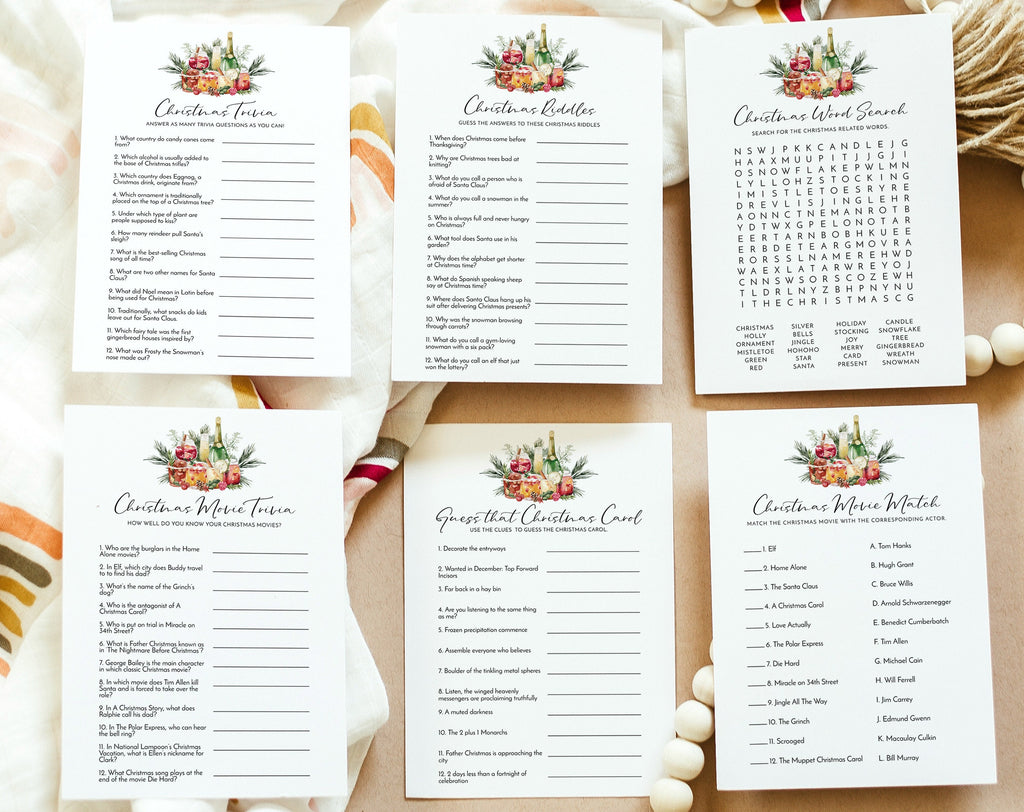 Christmas Trivia
ANSWER AS MANY TRIVIA QUESTIONS AS YOU CAN!
1. What country do candy canes come
from?
2. Which alcohol is usually added to
the base of Christmas trifles?
3. Which country does Eggnog, a
Christmas drink, originate from?
4. Which ornament is traditionally
placed on the top of a Christmas tree?
5. Under which type of plant are
people supposed to kiss?
6. How many reindeer pull Santa's
sleigh?
7. What is the best-selling Christmas
song of all time?
8. What are two other names for Santa
Claus?
9. What did Noel mean in Latin before
being used for Christmas?
10. Traditionally, what snacks do kids
leave out for Santa Claus.
11. Which fairy tale was the first
gingerbread houses inspired by?
12. What was Frosty the Snowman's
nose made out?
Christmas Riddles
GUESS THE ANSWERS TO THESE CHRISTMAS RIDDLES
1. When does Christmas come before
Thanksgiving?
2. Why are Christmas trees bad at
knitting?
3. What do you call a person who is
afraid of Santa Claus?
4. What do you call a snowman in the
summer?
5. Who is always full and never hungry
on Christmas?
6. What tool does Santa use in his
garden?
7. Why does the alphabet get shorter
at Christmas time?
8. What do Spanish speaking sheep
say at Christmas time?
9. Where does Santa Claus hang up his
suit after delivering Christmas presents?
10. Why was the snowman browsing
through carrots?
11. What do you call a gym-loving
snowman with a six pack?
12. What do you call an elf that just
won the lottery?
Christmas Word Search
SEARCH FOR THE CHRISTMAS RELATED WORDS.
N S W J P K K C A N D L E J G I
H A A X M U U P I T J J G J I
O S N O W F L A K E P W L M N
L Y L L O H Z S T O C K I N G
I M I S T L E T O E S R Y R E
D R E V L I S J I N G L E H R
A O N N C T N E M A N R O T B
Y D T W X G P E L O N O T A R
E E R T A R N B O B H K U E E
E R B D E T E A R G M O V R A
R O R S S L N A M E R E H W D
W A E X L A T A R W R E Y O J
C N N S W S O R S C O Z E W H
T L D R L N Y Z B H P N Y N U
I T H E C H R I S T M A S C G
CHRISTMAS SILVER HOLIDAY CANDLE
HOLLY BELLS STOCKING SNOWFLAKE
ORNAMENT JINGLE JOY TREE
MISTLETOE HOHOHO MERRY GINGERBREAD
GREEN STAR CARD WREATH
RED SANTA PRESENT SNOWMAN
Christmas Movie Trivia
HOW WELL DO YOU KNOW YOUR CHRISTMAS MOVIES?
1. Who are the burglars in the Home
Alone movies?
2. In Elf, which city does Buddy travel
to to find his dad?
3. What's the name of the Grinch's
dog?
4. Who is the antagonist of A
Christmas Carol?
5. Who is put on trial in Miracle on
34th Street?
6. What is Father Christmas known as
in 'The Nightmare Before Christmas'?
7. George Bailey is the main character
in which classic Christmas movie?
8. In which movie does Tim Allen kill
Santa and is forced to take over the
role?
9. In A Christmas Story, what does
Ralphie call his dad?
10. In The Polar Express, who can hear
the bell ring?
11. In National Lampoon's Christmas
Vacation, what is Ellen's nickname for
Clark?
12. What Christmas song plays at the
end of the movie Die Hard?
Guess that Christmas Carol
USE THE CLUES TO GUESS THE CHRISTMAS CAROL.
1. Decorate the entryways
2. Wanted in December: Top Forward
Incisors
3. Far back in a hay bin
4. Are you listening to the same thing
as me?
5. Frozen precipitation commence
6. Assemble everyone who believes
7. Boulder of the tinkling metal spheres
8. Listen, the winged heavenly
messengers are proclaiming truthfully
9. A muted darkness
10. The 2 plus 1 Monarchs
11. Father Christmas is approaching the
city
12. 2 days less than a fortnight of
celebration
Christmas Movie Match
MATCH THE CHRISTMAS MOVIE WITH THE CORRESPONDING ACTOR.
1. Elf A. Tom Hanks
2. Home Alone B. Hugh Grant
3. The Santa Claus C. Bruce Willis
4. A Christmas Carol D. Arnold Schwarzenegger
5. Love Actually E. Benedict Cumberbatch
6. The Polar Express F. Tim Allen
7. Die Hard G. Michael Cain
8. Miracle on 34th Street H. Will Ferrell
9. Jingle All The Way I. Jim Carrey
10. The Grinch J. Edmund Gwenn
11. Scrooged K. Macaulay Culkin
12. The Muppet Christmas Carol L. Bill Murray